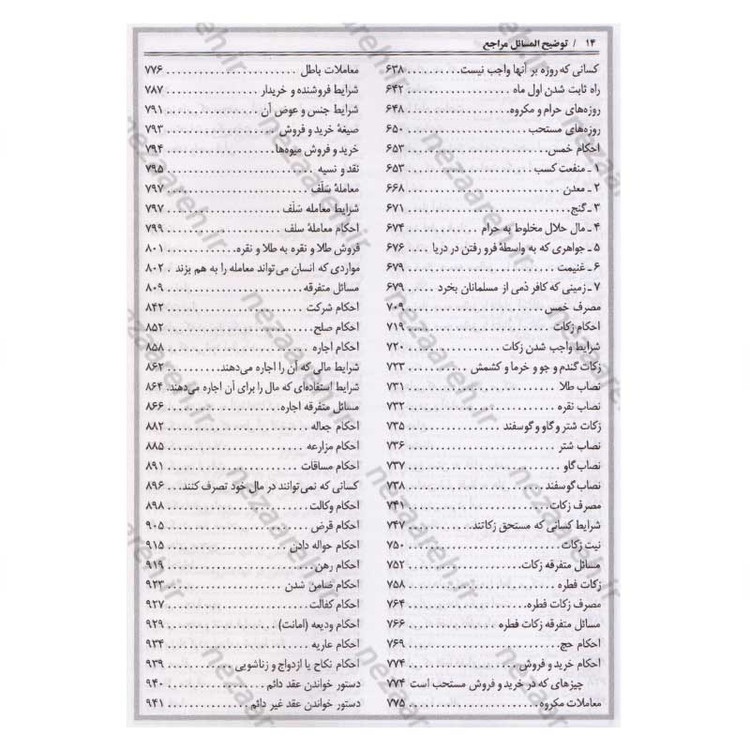 ۱۴ / توضیح المسائل مراجع
کسانی که روزه بر آنها واجب نیست.......... ۶۳۸
راه ثابت شدن اول ماه .......... ۶۴۲
روزه‌های حرام و مکروه.......... ۶۴۸
روزه‌های مستحب .......... ۶۵۰
احکام خمس.......... ۶۵۳
۱ ـ منفعت کسب .......... ۶۵۳
۲ ـ معدن .......... ۶۶۸
۳ ـ گنج.......... ۶۷۱
۴ ـ مال حلال مخلوط به حرام .......... ۶۷۴
۵ ـ جواهری که به واسطهٔ فرو رفتن در دریا .... ۶۷۶
۶ ـ غنیمت .......... ۶۷۹
۷ ـ زمینی که کافر ذمی از مسلمانان بخرد ..... ۶۷۹
مصرف خمس .......... ۷۰۹
احکام زکات.......... ۷۱۹
شرایط واجب شدن زکات .......... ۷۲۰
زکات گندم و جو و خرما و کشمش ......... ۷۲۳
نصاب طلا .......... ۷۳۱
نصاب نقره .......... ۷۳۲
زکات شتر و گاو و گوسفند .......... ۷۳۵
نصاب شتر .......... ۷۳۶
نصاب گاو .......... ۷۳۷
نصاب گوسفند .......... ۷۳۸
مصرف زکات.......... ۷۴۱
شرایط کسانی که مستحق زکاتند.......... ۷۴۷
نیت زکات.......... ۷۵۰
مسائل متفرقه زکات.......... ۷۵۲
زکات فطره .......... ۷۵۸
مصرف زکات فطره.......... ۷۶۴
مسائل متفرقه زکات فطره .......... ۷۶۶
احکام حج.......... ۷۶۹
احکام خرید و فروش .......... ۷۷۴
چیزهای که در خرید و فروش مستحب است ۷۷۴
معاملات مکروه.......... ۷۷۵
معاملات باطل .......... ۷۷۶
شرایط فروشنده و خریدار .......... ۷۸۷
شرایط جنس و عوض آن .......... ۷۹۱
صیغهٔ خرید و فروش .......... ۷۹۳
خرید و فروش میوه‌ها.......... ۷۹۴
نقد و نسیه .......... ۷۹۵
معاملهٔ سَلَف .......... ۷۹۷
شرایط معامله سَلَف .......... ۷۹۷
احکام معاملهٔ سلف .......... ۷۹۹
فروش طلا و نقره به طلا و نقره.......... ۸۰۱
مواردی که انسان می‌تواند معامله را به هم بزند . ۸۰۲
مسائل متفرقه .......... ۸۰۹
احکام شرکت .......... ۸۴۲
احکام صلح .......... ۸۵۲
احکام اجاره .......... ۸۵۸
شرایط مالی که آن را اجاره می‌دهند.......... ۸۶۲
شرایط استفاده‌ای که مال را برای آن اجاره می‌دهند. ۸۶۴
مسائل متفرقه اجاره.......... ۸۶۶
احکام جعاله .......... ۸۸۲
احکام مزارعه .......... ۸۸۵
احکام مساقات .......... ۸۹۱
کسانی که نمی‌توانند در مال خود تصرف کنند... ۸۹۶
احکام وکالت .......... ۸۹۸
احکام قرض .......... ۹۰۵
احکام حواله دادن .......... ۹۱۵
احکام رهن.......... ۹۱۹
احکام ضامن شدن .......... ۹۲۳
احکام کفالت .......... ۹۲۷
احکام ودیعه (امانت) .......... ۹۲۹
احکام عاریه .......... ۹۳۴
احکام نکاح یا ازدواج و زناشویی .......... ۹۳۹
دستور خواندن عقد دائم .......... ۹۴۰
دستور خواندن عقد غیر دائم .......... ۹۴۱
nezaareh.ir